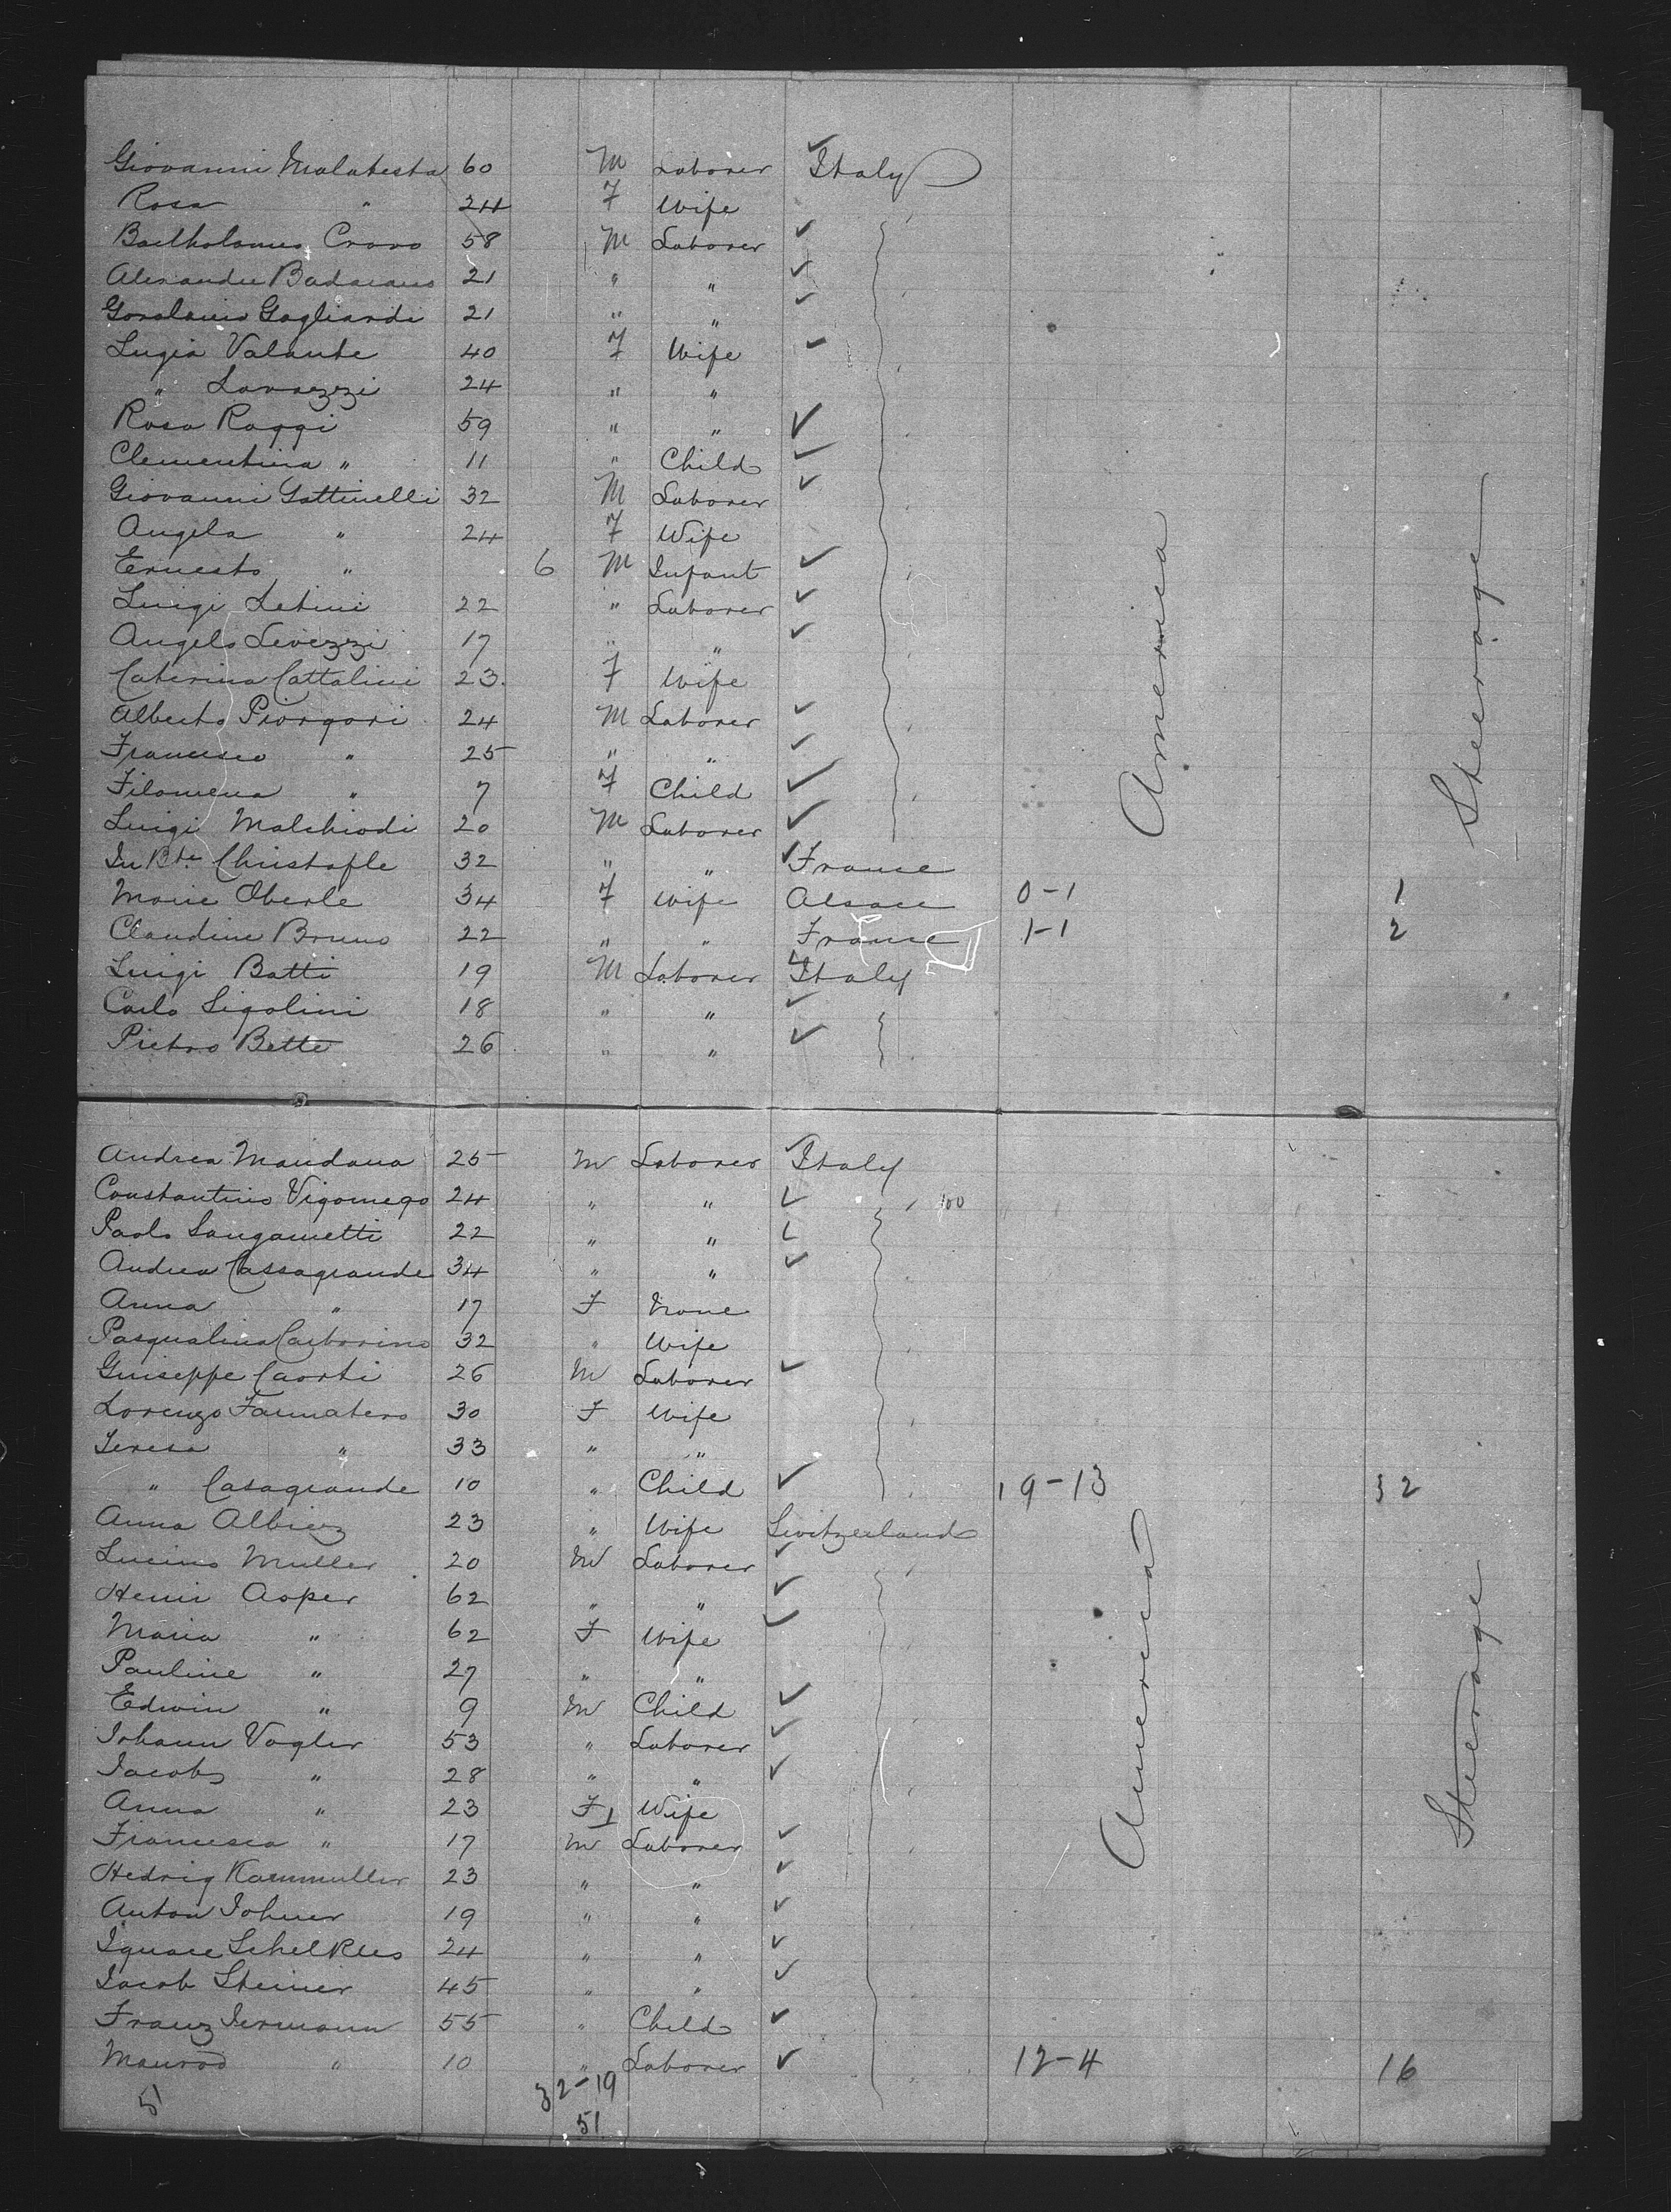 Giovanni Malatesta 60 M Laborer Italy
Rosa " 24 F Wife
Bartholomeo Crovo 58 M Laborer
Alexandre Badaraco 21 " "
Gagliardi 21 " "
Lugia Valante 40 F Wife
" Lavezzi 24 " "
Rosa Raggi 59 " "
Clementina " 11 " Child
Giovanni Gattinelli 32 M Laborer
Angela " 24 F Wife
Ernesto " 6 M Infant
Luigi Letini 22 " Laborer
Angelo Levezzi 17 " "
Caterina Cattalini 23 F Wife
Alberto Piorgori 24 M Laborer
Francesco " 25 " "
Filomena " 7 F Child
Luigi Malchiodi 20 M Laborer
Christofle 32 " " France
Marie Oberle 34 F Wife Alsace 0-1 1
Claudine Bruno 22 " " France 1-1 2
Luigi Batti 19 M Laborer Italy
Carlo Sigolini 18 " "
Pietro Bette 26 " "
America
Steerage
Andrea Mandana 25 M Laborer Italy
Constantino Vigomego 24 " " 100
Paolo Sangametti 22 " "
Andrea Cassagrande 34 " "
Anna " 17 F None
Pasqualina Carbonino 32 " Wife
Guiseppe Caorti 26 M Laborer
Lorenzo 30 F Wife
Teresa " 33 " "
" Casagrande 10 " Child 19-13 32
Anna Albiez 23 " Wife Switzerland
Lucius Muller 20 M Laborer
Henri Asper 62 " "
Maria " 62 F Wife
Pauline " 27 " "
Edwin " 9 M Child
Johann Vogler 53 " Laborer
Jacob " 28 " "
Anna " 23 F Wife
Francisca " 17 M Laborer
Hedvig Kammuller 23 " "
Anton Johner 19 " "
Ignace Schelkles 24 " "
Jacob Steiner 45 " "
Franz Jermann 55 " Child
Manrod " 10 " Laborer 12-4 16
America
Steerage
51 32-19
51